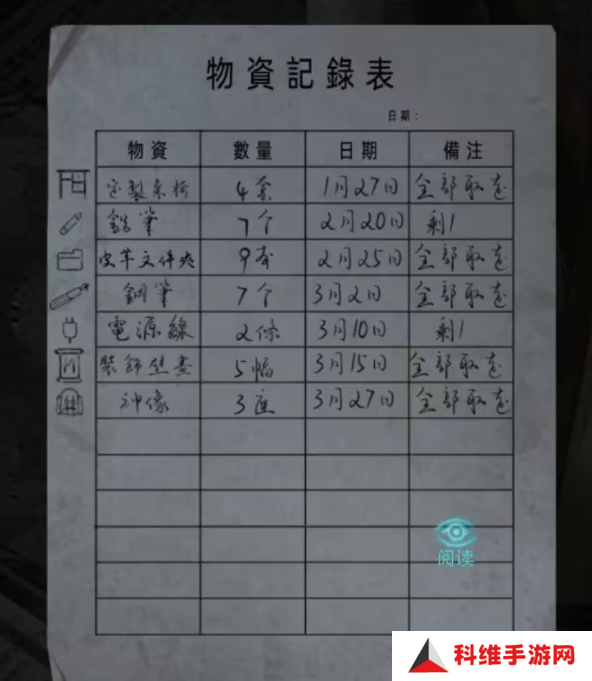 物資記錄表
日期：
物資 數量 日期 備注
定製桌椅 4套 1月27日 全部取走
鉛筆 7个 2月20日 剩1
皮革文件夾 9本 2月25日 全部取走
鋼筆 7个 3月2日 全部取走
電源線 2條 3月10日 剩1
裝飾壁畫 5幅 3月15日 全部取走
神像 3座 3月27日 全部取走
阅读
科维手游网